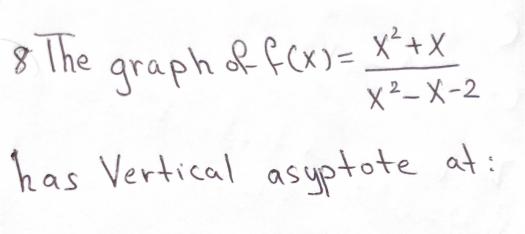 8 The graph of f(x) = x²+x / x²-x-2
has Vertical asyptote at: